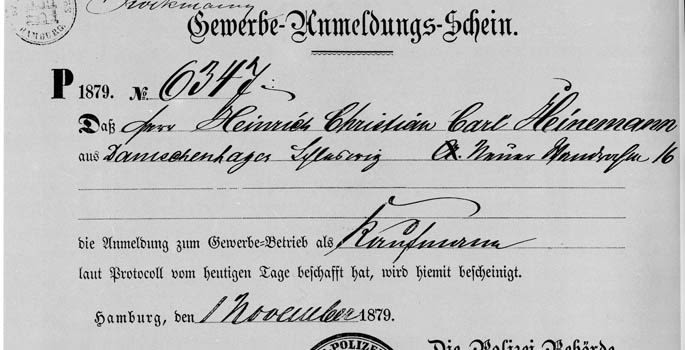 HAMBURG.
Gewerbe-Anmeldungs-Schein.
P 1879. № 6347.
Daß Herr Heinrich Christian Carl Heinemann
aus Dänischenhagen Schleswig Neuer Wandrahm 16
die Anmeldung zum Gewerbe-Betrieb als Kaufmann
laut Protocoll vom heutigen Tage beschafft hat, wird hiemit bescheinigt.
Hamburg, den 1 November 1879.
POLIZEI
Die Polizei-Behörde